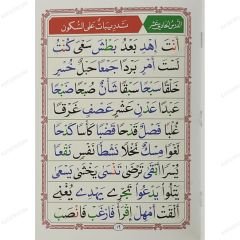 الدرس الحادي عشر
تدريبات على السكون
أَنْتَ إِهْدِ بَعْدُ بَطْشَ سَعْىَ كُنْتُ
لَسْتَ أَمْرٍ بَرْدًا جَمْعًا حَبْلٌ خُسْرٍ
خَلْقًا سَبْحًا سَبْقًا شَأْنٌ صُبْحًا ضَبْحًا
عَبْدًا عَدْنٍ عَشْرٍ عَصْفٍ غَرْقًا
غُلْبًا فَصْلٌ قَدْحًا قَضْبًا كَأْسًا كَدْحًا
لَغْوًا مِسْكٌ نَخْلًا نَشْطًا نَفْسٍ نَقْعًا
يُسْرًا أَبْقَى تَرْضَى تَنْسَى يَخْشَى يَسْعَى
يَتْلُوا يَدْعُوا تَجْرِى يَهْدِى يُغْنِى
أَلْقَتْ أَمْهِلْ إِقْرَأْ فَارْغَبْ فَانْصَبْ